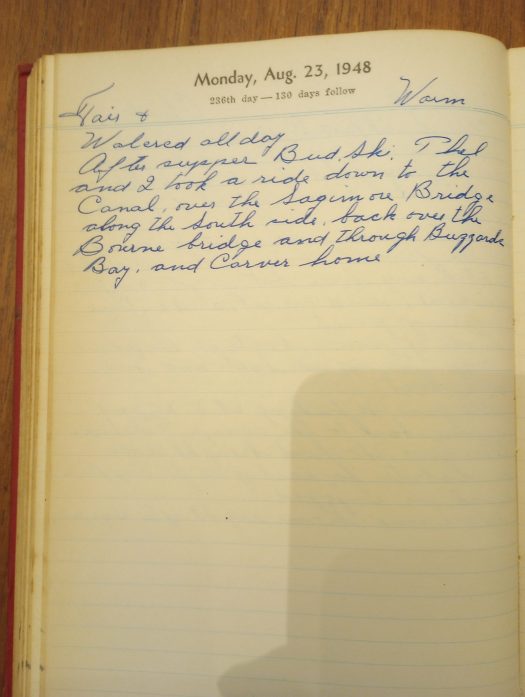 Monday, Aug. 23, 1948
236th day — 130 days follow
Fair & Warm
Watered all day
After supper Bud, Ski, Phil
and I took a ride down to the
Canal, over the Sagimore Bridge
along the South side, back over the
Bourne bridge and through Buzzards
Bay, and Carver home